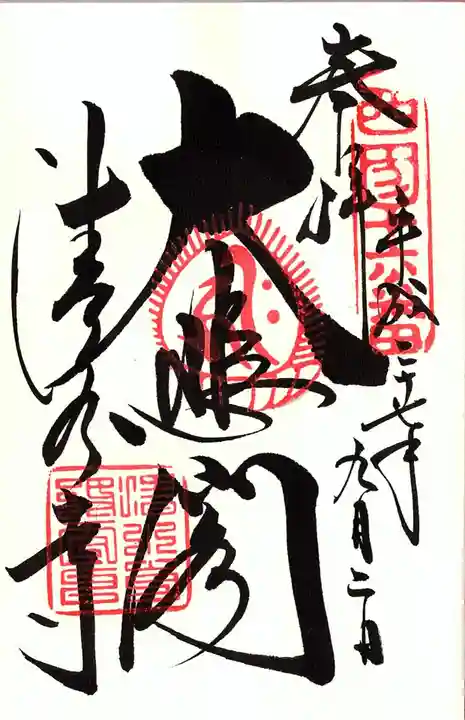 西國十六番
奉拝
平成二十七年九月二日
大悲閣
清水寺